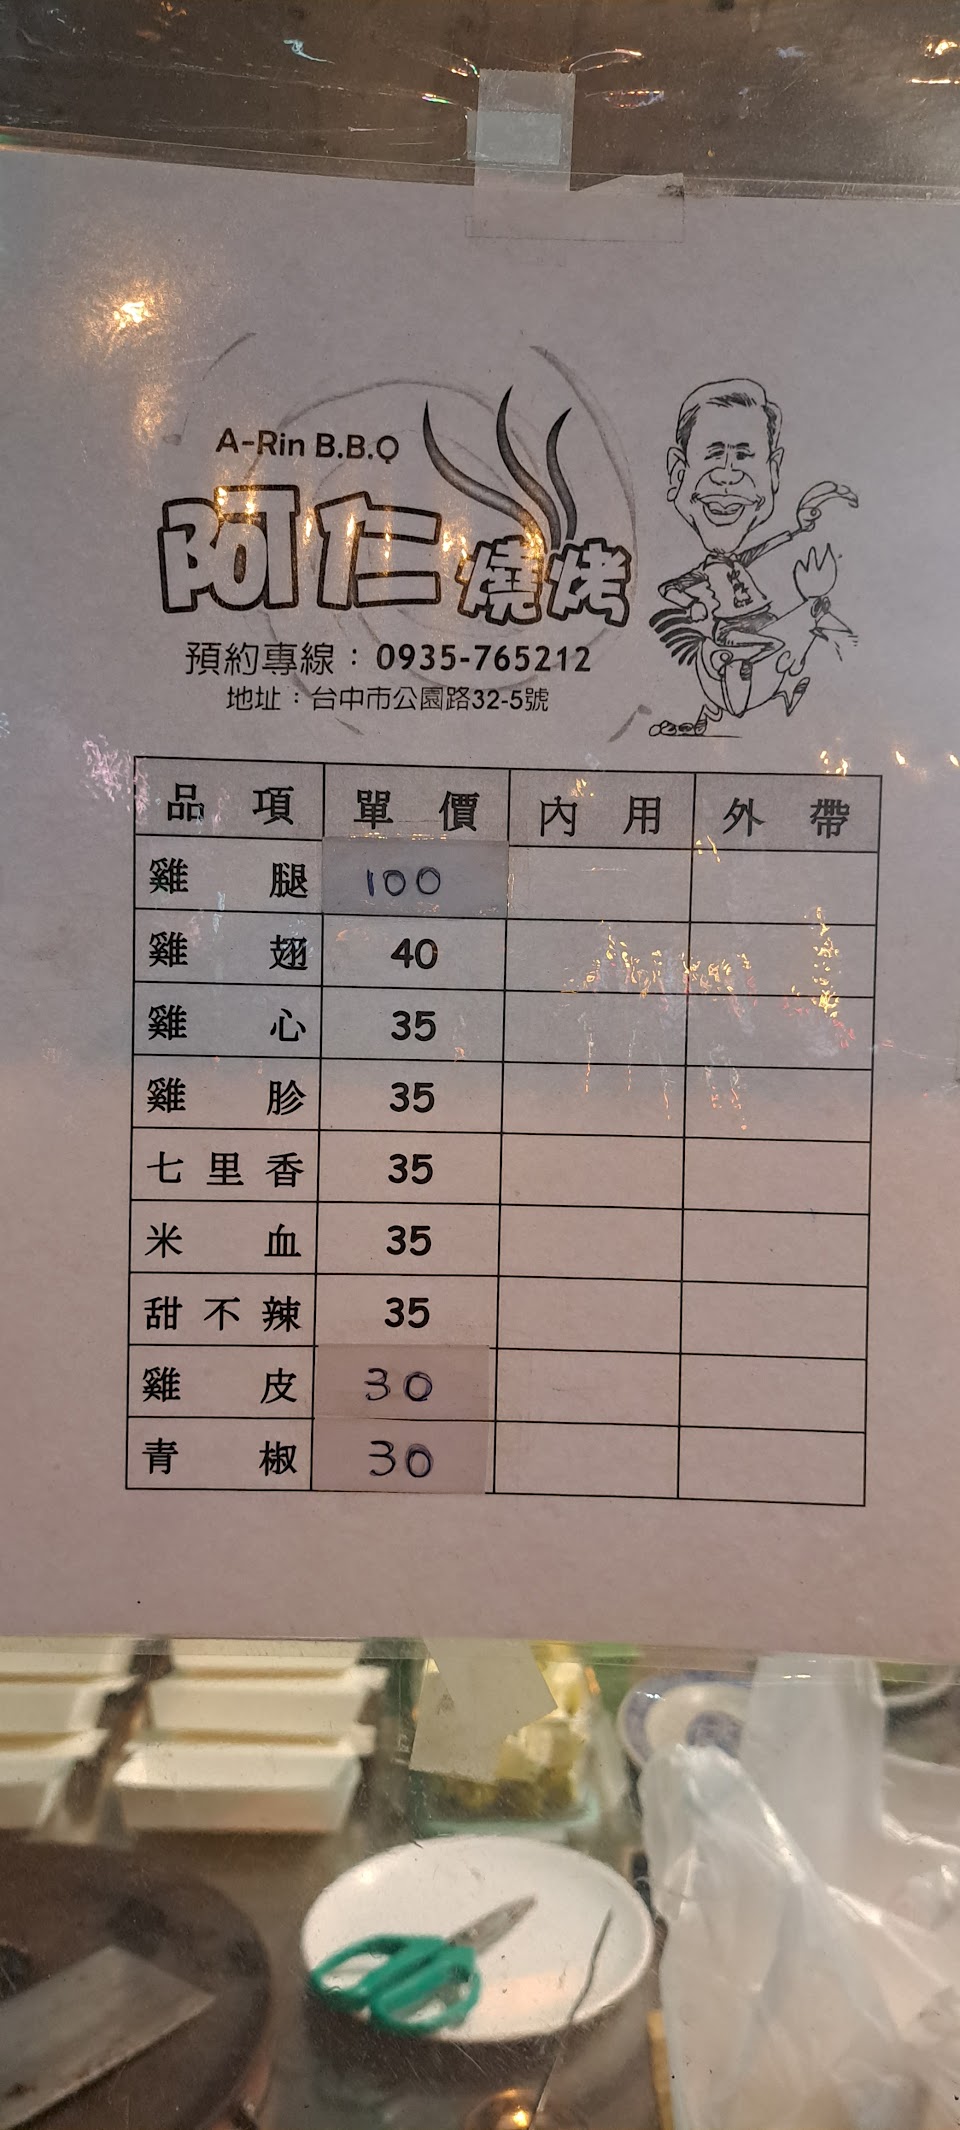 A-Rin B.B.Q
阿仁燒烤
預約專線：0935-765212
地址：台中市公園路32-5號
品項 單價 內用 外帶
雞腿 100
雞翅 40
雞心 35
雞胗 35
七里香 35
米血 35
甜不辣 35
雞皮 30
青椒 30